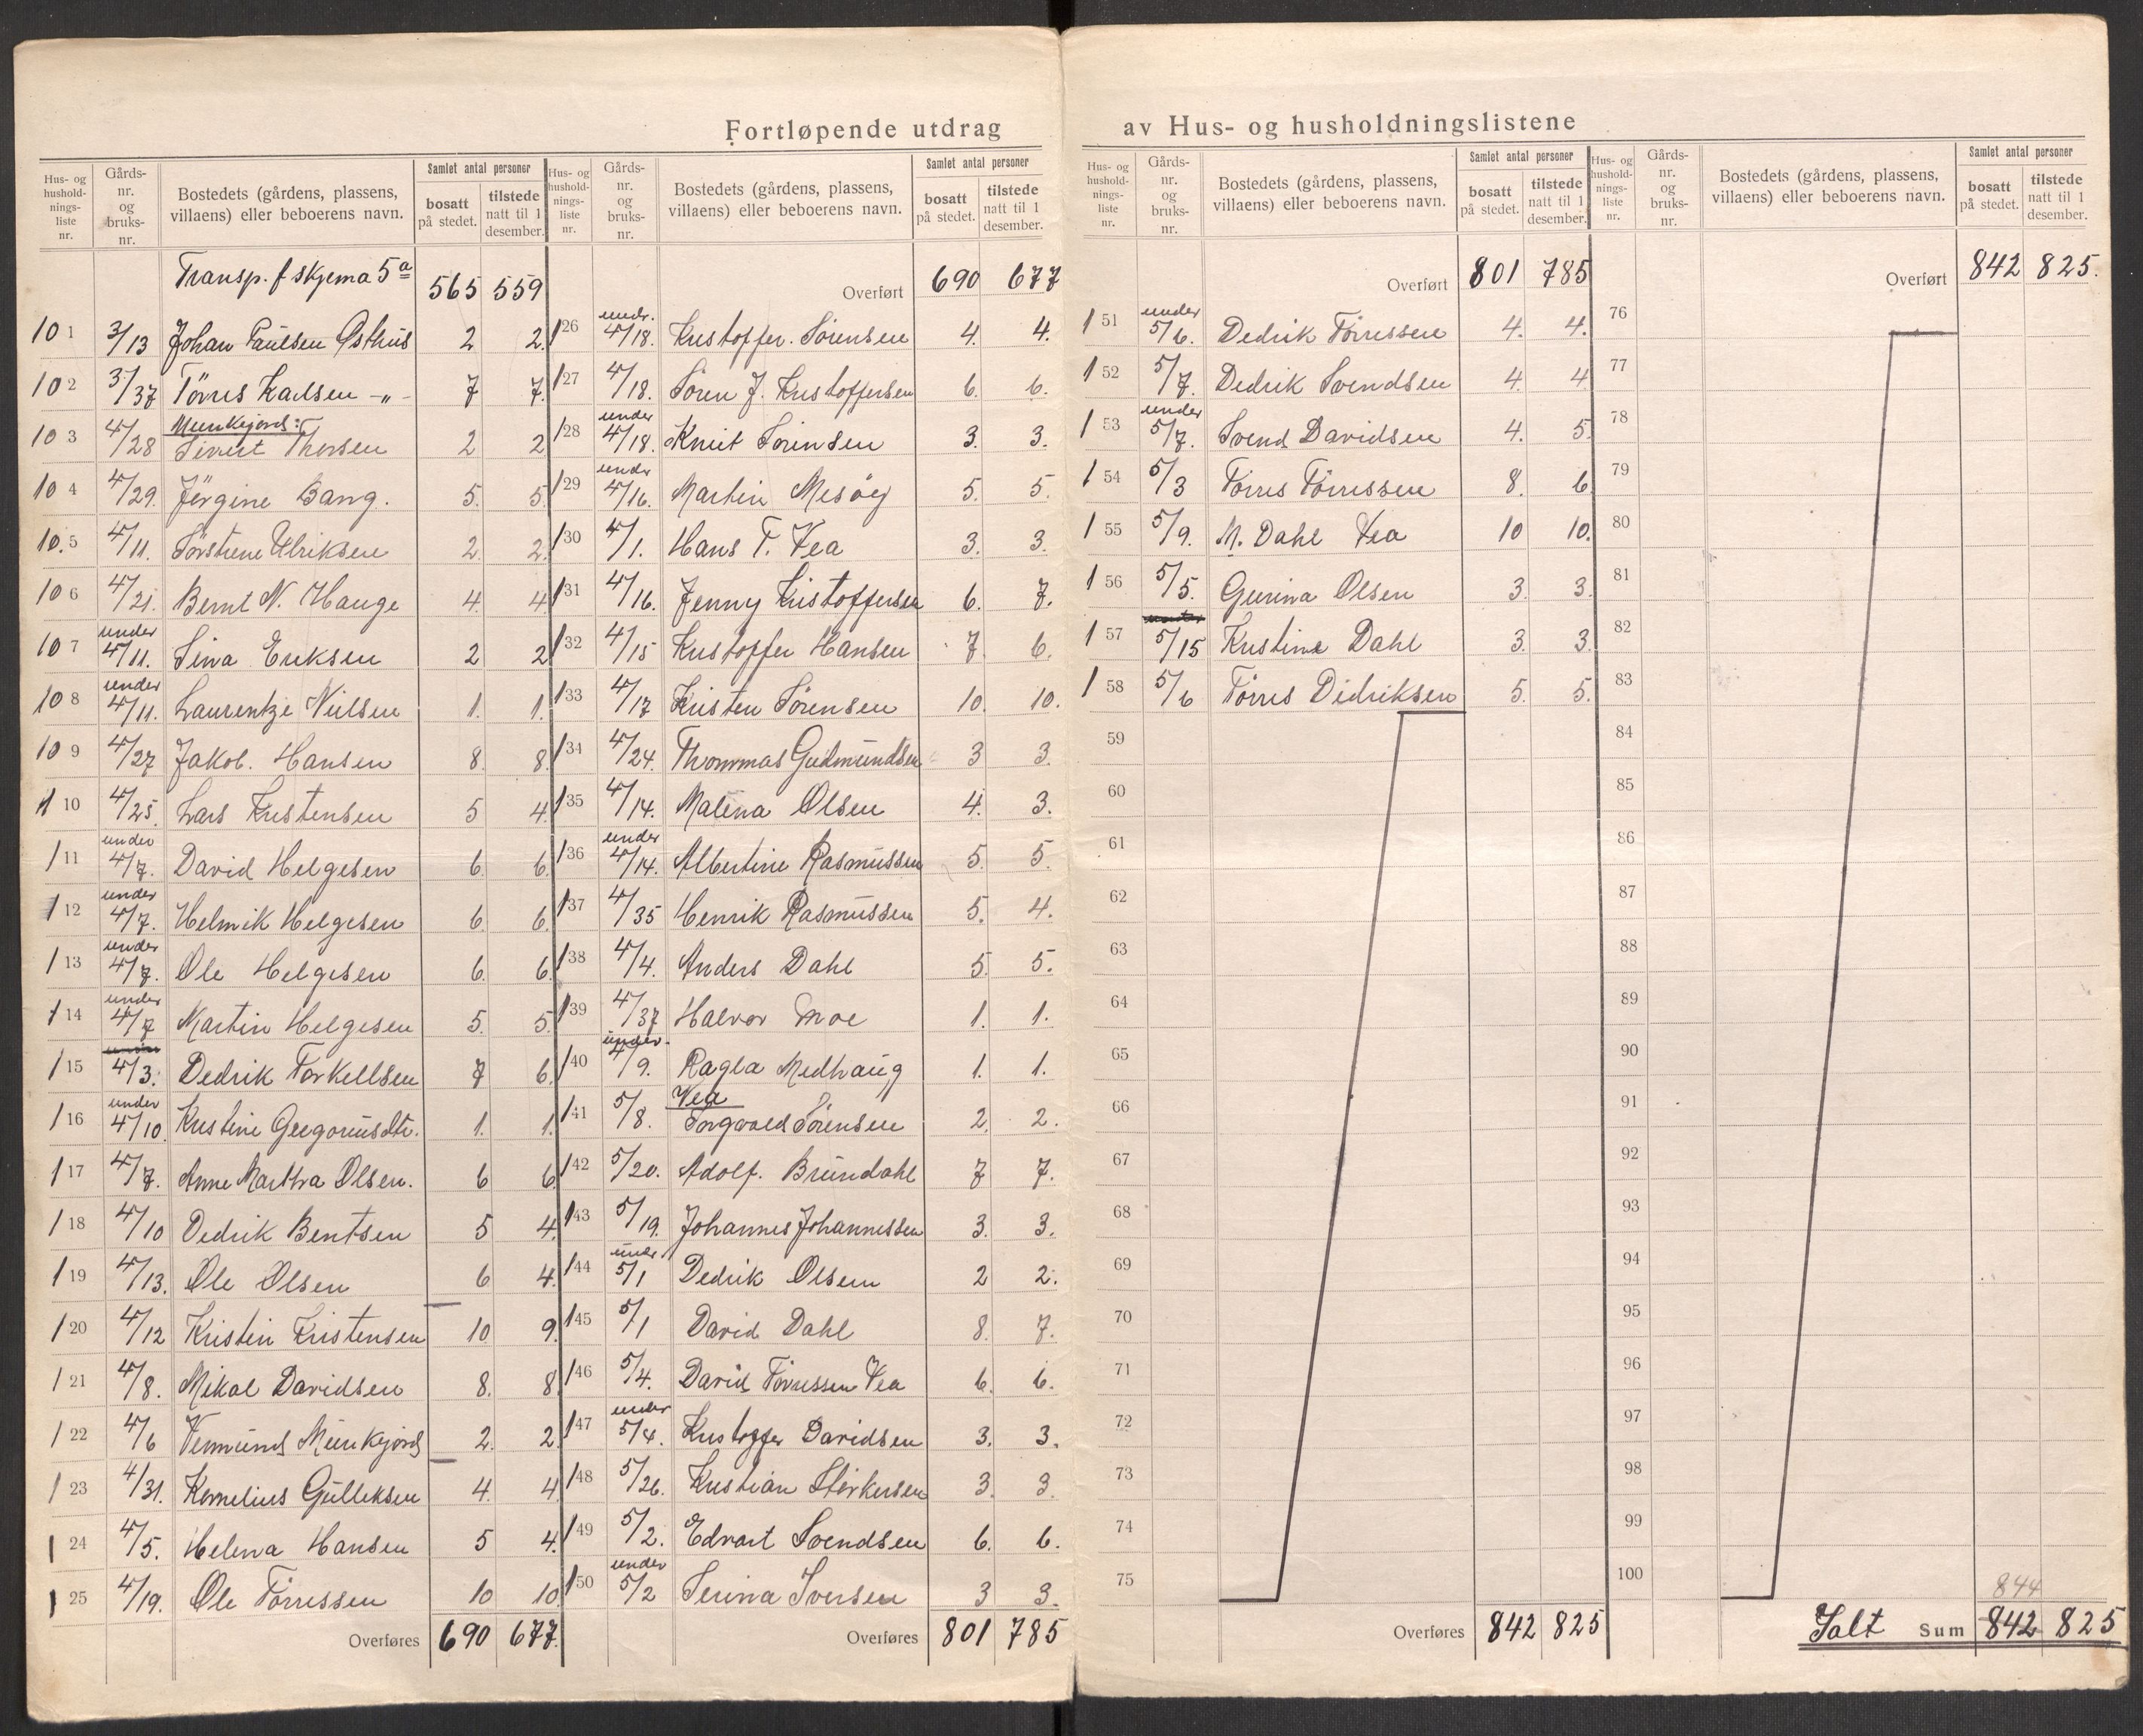 Fortløpende utdrag av Hus- og husholdningslistene
Hus- og husholdningsliste nr. | Gårds- nr. og bruks- nr. | Bostedets (gårdens, plassens, villaens) eller beboerens navn. | Samlet antal personer | bosatt på stedet. | tilstede natt til 1 desember.
Transp. f skjema 5a 565 559
101 3/13 Johan Paulsen Østhus 2 2.
102 3/37 Törres Karlsen -"- 7 7.
Munkejord:
103 4/28 Sivert Thorsen 2 2
104 4/29. Jörgine Bang. 5. 5.
10.5 4/11. Torstine Ulriksen 2. 2.
106 4/21. Bernt N. Hauge 4. 4
107 under 4/11. Sina Eriksen 2 2
108 under 4/11. Laurentze Nilsen 1. 1.
109 4/27 Jakob. Hansen 8. 8.
110 4/25. Lars Kristensen 5 4.
111 under 4/7. David Helgesen 6. 6.
112 under 4/7. Helmik Helgesen 6. 6.
113 under 4/7. Ole Helgesen 6. 6.
114 under 4/7 Martin Helgesen 5. 5.
115 4/3. Dedrik Torkellsen 7 6.
116 under 4/10 Kristine Gregoriusdtr. 1. 1.
117 4/7. Anne Martha Olsen. 6 6.
118 4/10 Dedrik Bentsen 5 4.
119 4/13. Ole Olsen 6 4.
120 4/12 Kristin Kristensen 10 9.
121 4/8. Mikal Davidsen 8. 8.
122 4/6 Vermund Munkejord 2. 2.
123 4/31. Kornelius Gulleksen 4. 4.
124 4/5. Helena Hansen 5 4.
125 4/19. Ole Törressen 10 10.
Overføres 690 677.
Hus- og husholdningsliste nr. | Gårds- nr. og bruks- nr. | Bostedets (gårdens, plassens, villaens) eller beboerens navn. | Samlet antal personer | bosatt på stedet. | tilstede natt til 1 desember.
Overført 690 677
126 under 4/18. Kristoffer. Sörensen 4. 4.
127 4/18. Sören J. Kristoffersen 6. 6.
128 under 4/18. Knut Sörensen 3. 3.
129 under 4/16. Martin Mesöy 5. 5.
130 4/1. Hans T. Vea 3. 3.
131 4/16. Jenny Kristoffersen 6. 7.
132 4/15 Kristoffer Hansen 7. 6.
133 4/17 Kristen Sörensen 10. 10.
134 4/24. Thommas Gudmundsen 3 3.
135 4/14. Malena Olsen 4. 3.
136 under 4/14. Albertine Rasmussen 5. 5.
137 4/35 Henrik Rasmussen 5. 4.
138 4/4. Anders Dahl 5. 5.
139 4/37 Halvor Moe 1. 1.
140 under 4/9. Ragla Medhaug 1. 1.
Vea
141 5/8. Torgvald Sörensen 2. 2.
142 5/20. Adolf. Brundahl 7 7.
143 5/19. Johannes Johannessen 3. 3.
144 under 5/1 Dedrik Olsen 2 2.
145 5/1 David Dahl 8. 7.
146 5/4. David Törressen Vea 6. 6.
147 under 5/4. Kristoffer Davidsen 3. 3.
148 5/26. Kristian Störkersen 3. 3.
149 5/2. Edvart Svendsen 6. 6.
150 under 5/2 Serina Iversen 3 3.
Overføres 801 785
Hus- og husholdningsliste nr. | Gårds- nr. og bruks- nr. | Bostedets (gårdens, plassens, villaens) eller beboerens navn. | Samlet antal personer | bosatt på stedet. | tilstede natt til 1 desember.
Overført 801 785
151 under 5/6. Dedrik Törressen 4. 4.
152 5/7. Dedrik Svendsen 4. 4
153 under 5/7. Svend Davidsen 4. 5.
154 5/3 Törres Törressen 8. 6
155 5/9. M. Dahl Vea 10 10.
156 5/5. Gurina Olsen 3. 3.
157 5/15 Kristine Dahl 3. 3.
158 5/6 Törres Didriksen 5. 5.
59
60
61
62
63
64
65
66
67
68
69
70
71
72
73
74
75
Overføres 842 825
Hus- og husholdningsliste nr. | Gårds- nr. og bruks- nr. | Bostedets (gårdens, plassens, villaens) eller beboerens navn. | Samlet antal personer | bosatt på stedet. | tilstede natt til 1 desember.
Overført 842 825.
76
77
78
79
80
81
82
83
84
85
86
87
88
89
90
91
92
93
94
95
96
97
98
99
100
844
Ialt Sum 842 825